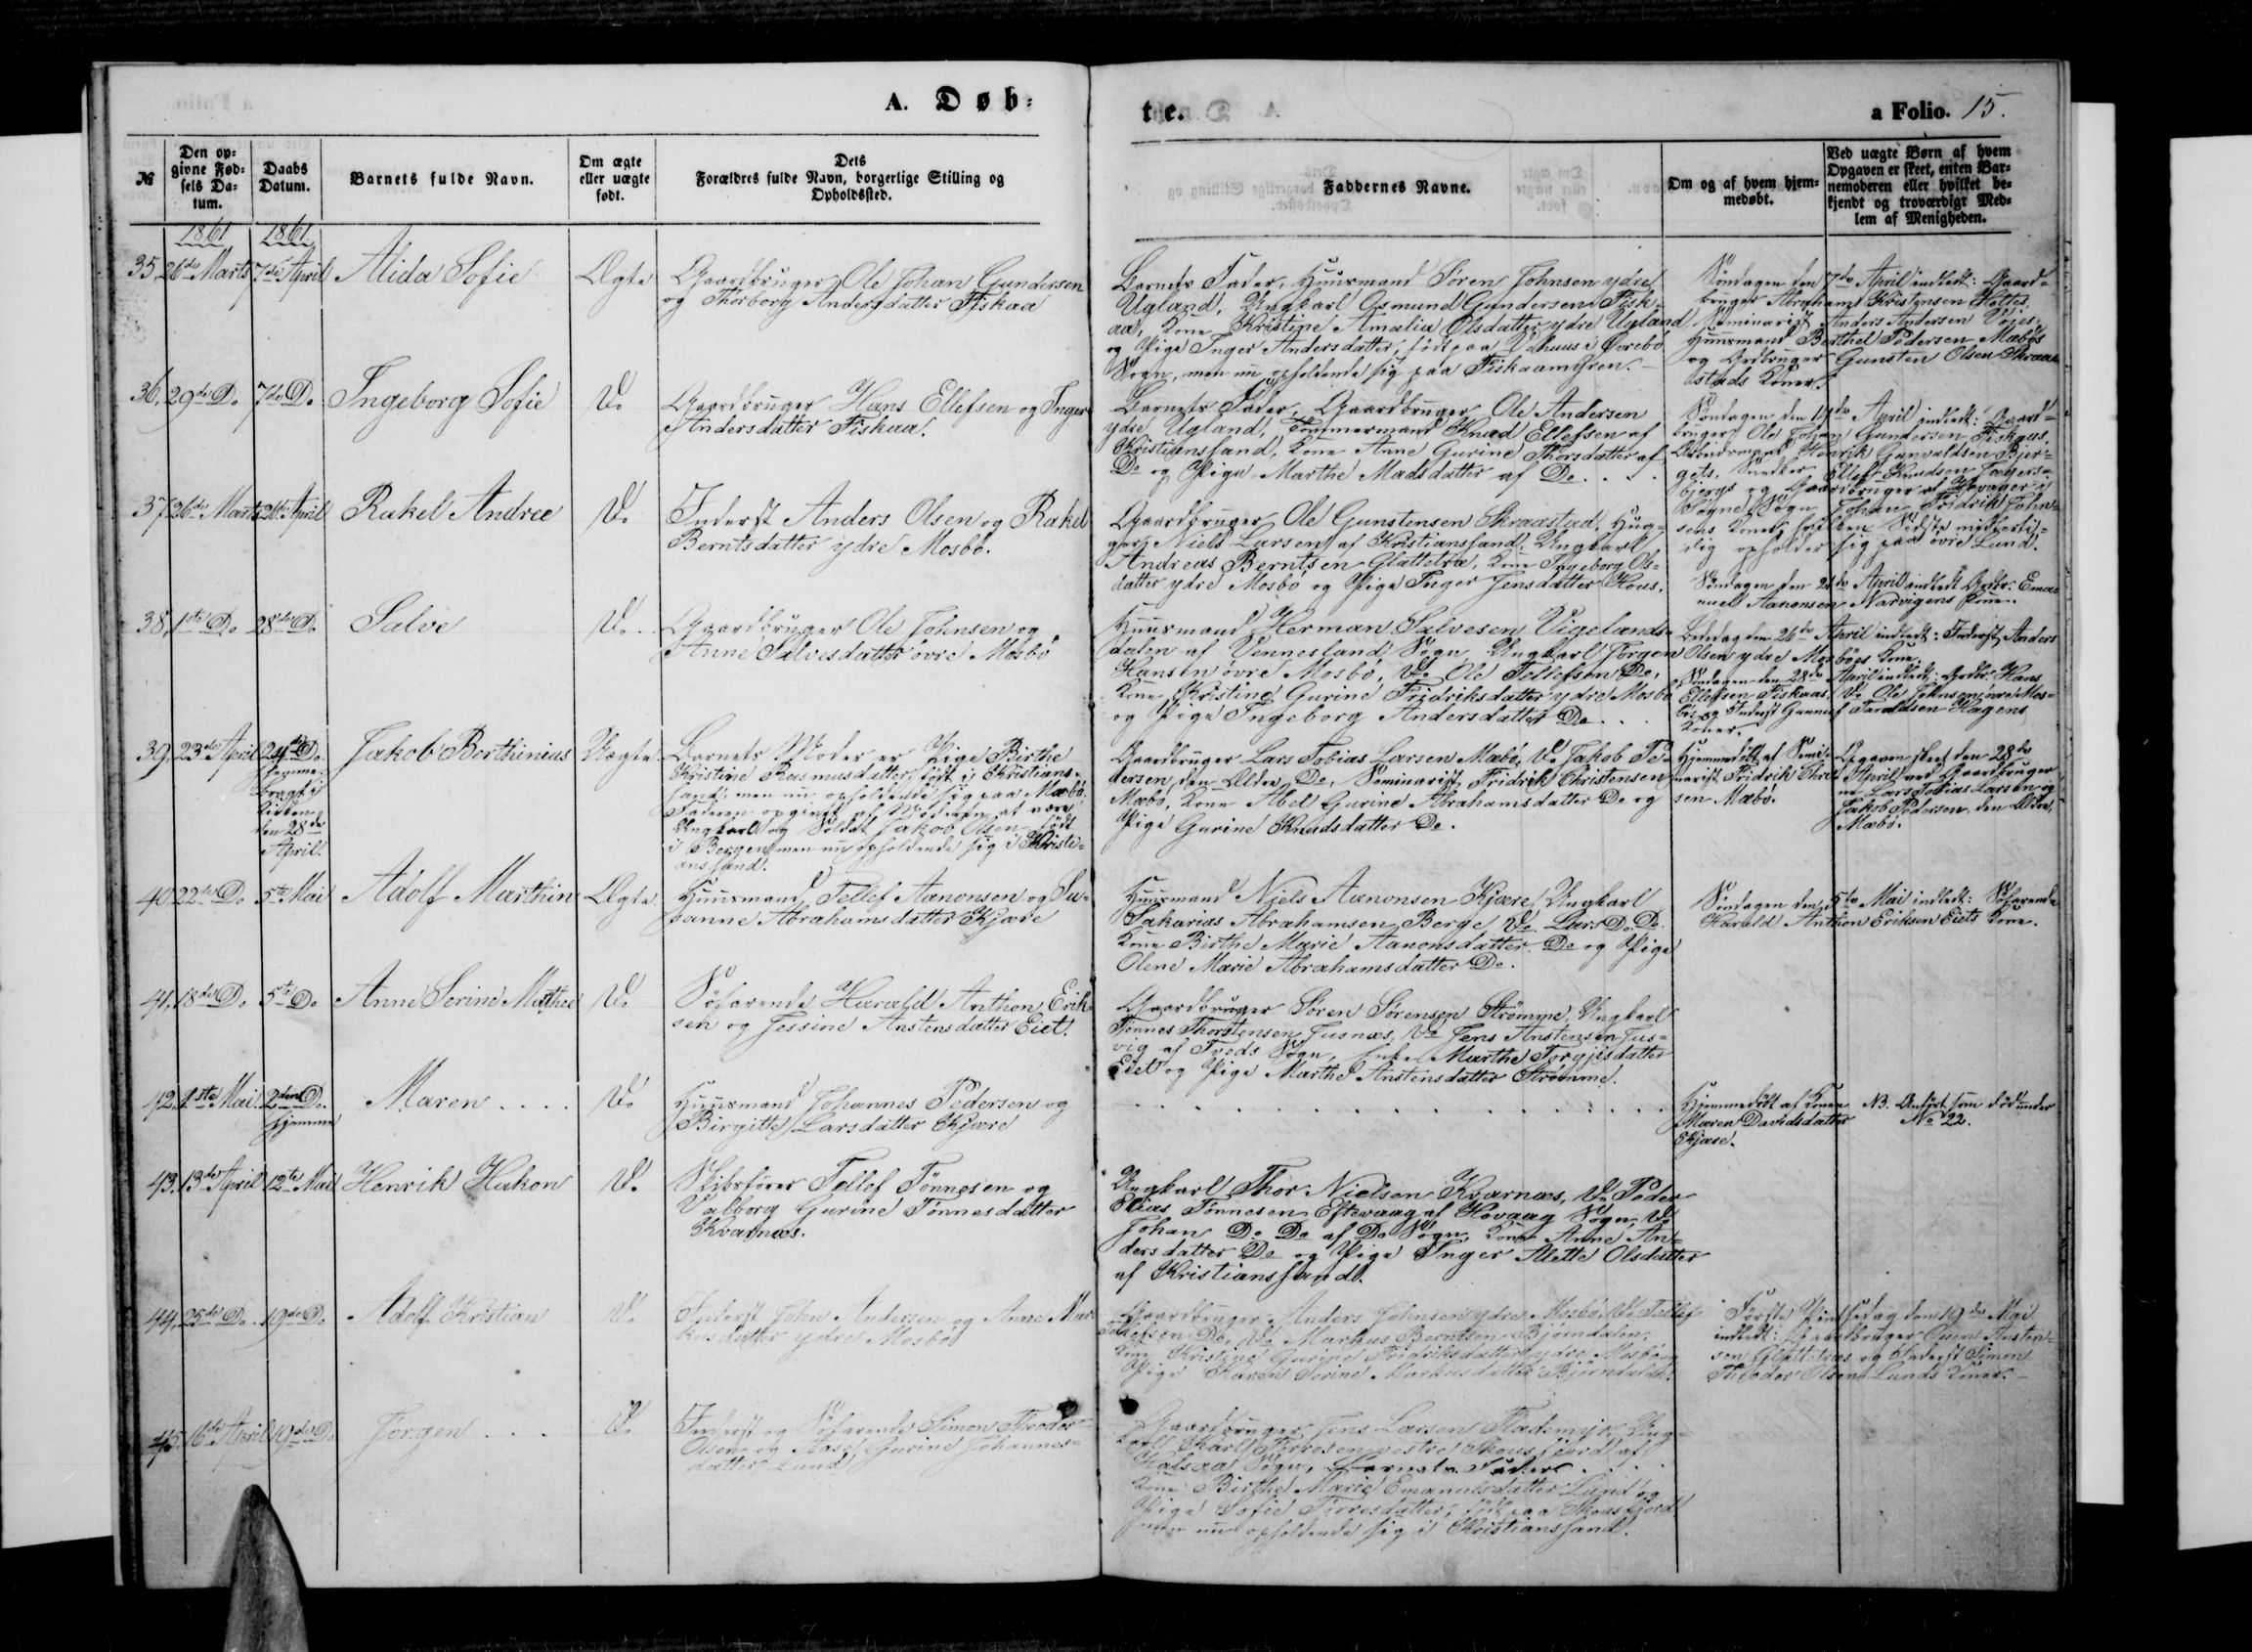 A. Døb-
te.
a Folio. 15.
№
Den op-
givne Fød-
sels Da-
tum.
Daabs
Datum.
Barnets fulde Navn.
Om ægte
eller uægte
født.
Dets
Forældres fulde Navn, borgerlige Stilling og
Opholdssted.
Faddernes Navne.
Om og af hvem hjem-
medøbt.
Ved uægte Børn af hvem
Opgaven er skeet, enten Bar-
nemoderen eller hvilket be-
kjendt og troværdigt Med-
lem af Menigheden.
1861 1861
35 26de Marts 7de April Alida Sofie Ægte Gaardbruger Ole Johan Gundersen
og Thorborg Andersdatter Fiskaa
Barnets Fader, Huusmand Søren Johnsen ydre
Ugland, Ungkarl Osmund Gundersen Fisk-
aa, Kone Kristine Amalia Olsdatter ydre Ugland
og Pige Inger Andersdatter, født paa Vehuus i Øvrebø
Sogn, men nu opholdende sig paa Fiskaamyren.
Søndagen den 7de April indledt: Gaard-
bruger Abraham Kristensen
Seminarist Anders Andersen Voies,
Huusmand Berthel Pedersen Mæbøs
og Grdbruger Gunsten Olsen Skraa-
stads Koner.
36. 29de Do 7de Do Ingeborg Sofie Do Gaardbruger Hans Ellefsen og Inger
Andersdatter Fiskaa.
Barnets Fader, Gaardbruger Ole Andersen
ydre Ugland, Tømmermand Knud Ellefsen af
Kristianssand, Kone Anne Gurine Thorsdatter af
Do og Pige Marthe Madsdatter af Do . . . .
Søndagen den 14de April indledt: Gaard-
bruger Ole Johan Gundersen Fiskaas,
Henrik Gunvaldsen Bjer-
gets, Ellef Knudsen
bjergs og Gaardbruger af
Søgne Sogn Johan Fridrik John-
sens Koner, hvilken Sidste midlerti-
dig opholder sig paa øvre Lund.
37 26de Marts 21de April Rakel Andrea Do Inderst Anders Olsen og Rakel
Berntsdatter ydre Mosbø.
Gaardbruger Ole Gunstensen Skraastad,
Niels Larsen af Kristianssand, Ungkarl
Andreas Berntsen Glattetræ, Kone Ingeborg Ols-
datter ydre Mosbø og Pige Inger Jensdatter Hous.
Søndagen den 21de April indledt Grdbr. Ema-
nuel Aanonsen Narvigens Kone.
38. 1ste Do 28de Do Salve Do Gaardbruger Ole Johnsen og
Anne Salvesdatter øvre Mosbø
Huusmand Herman Salvesen Vigelands-
dalen af Vennesland Sogn, Ungkarl Jørgen
Hansen øvre Mosbø, Do Ole Tellefsen Do,
Kone Kristine Gurine Fridriksdatter ydre Mosbø
og Pige Ingeborg Andersdatter Do . . .
Bededag den 26de April indledt: Inderst Anders
Olsen ydre Mosbøes Kone.
Søndagen den 28de April indledt: Grdbr. Hans
Ellefsen Fiskaas, Do Ole Johnsen øvre Mos-
bøs og Inderst Gunnuf Taraldsen Hagens
Koner.
39. 23de April 24de Do
hjemme,
bragt i
Kirken
den 28de
April. Jakob Berthinius Uægte Barnets Moder er Pige Birthe
Kristine Rasmusdatter, født i Kristians-
sand, men nu opholdende sig paa Mæbø.
Faderen opgivet af Moderen at være
Ungkarl og Soldat Jakob Olsen, født
i Bergen, men nu opholdende sig i Kristi-
anssand.
Gaardbruger Lars Tobias Larsen Mæbø, Do Jakob Pe-
dersen, den Ældre, Do, Seminarist Fridrik Christensen
Mæbø, Kone Abel Gurine Abrahamsdatter Do og
Pige Gurine Knudsdatter Do.
Hjemmedøbt af Semi-
narist Fridrik Christen-
sen Mæbø.
Opgaven skeet den 28de
April ved Gaardbruger-
ne Lars Tobias Larsen og
Jakob Pedersen, den Ældre,
Mæbø.
40 22de Do 5te Mai Adolf Marthin Ægte Huusmand Tellef Aanonsen og Su-
sanne Abrahamsdatter Kjære
Huusmand Niels Aanonsen Kjære, Ungkarl
Sakarias Abrahamsen Berge, Do Lars Do Do
Kone Birthe Marie Aanonsdatter Do og Pige
Olene Marie Abrahamsdatter Do.
Søndagen den 5te Mai indledt: Søfarende
Harald Anthon Eriksen Eiets Kone.
41. 18de Do 5te Do Anne Serine Mathea Do Søfarende Harald Anthon Erik-
sen og Jessine Anstensdatter Eiet.
Gaardbruger Søren Sørensen Strømme, Ungkarl
Tønnes Thorstensen Fusnæs, Do Jens Anstensen
vig af Tveds Sogn, Enke Marthe Torgjisdatter
Eiet og Pige Marthe Anstensdatter Strømme.
42. 1ste Mai 2den Do
hjemme Maren . . . . Do Huusmand Johannes Pedersen og
Birgitte Larsdatter Kjære
. . . . . . . . . . . . . . .
Hjemmedøbt af Kone
Maren Davidsdatter
Kjære.
NB. Anført som død under
No 22.
43. 13de April 12te Mai Henrik Hakon Do Skibsfører Tellef Tønnesen og
Valborg Gurine Tønnesdatter
Kvarnæs.
Ungkarl Thor Nielsen Kvarnæs, Do Peder
Elias Tønnesen Eftevaag af Høvaag Sogn, Do
Johan Do Do af Do Sogn, Kone Anne An-
dersdatter Do og Pige Inger Mette Olsdatter
af Kristianssand.
44. 25de Do 19de Do Adolf Kristian Do Inderst John Andersen og Anne Mar-
kusdatter ydre Mosbø
Gaardbruger Anders Johnsen ydre Mosbø, Do Tellef
Tellefsen Do, Do Markus Berntsen Bjørndalen,
Kone Kristine Gurine Fridriksdatter ydre Mosbø og
Pige Karen Serine Markusdatter Bjørndalen.
Første Pintsedag den 19de Mai
indledt: Gaardbruger Ouen Ansten-
sen Glattetræs og Inderst Simon
Theodor Olsens Lunds Koner.
45. 16de April 19de Do Jørgen . . . Do Inderst og Søfarende Simon Theodor
Olsen og Aase Gurine Johannes-
datter Lund
Gaardbruger Jens Larsen Fladmyr, Ung-
karl Karl Torkesen vestre Skousfjord af
Halsaa Sogn, Barnets Fader . . . .
Kone Birthe Marie Emanuelsdatter Lund og
Pige Sofie Torresdatter, født paa Skousfjord
men nu opholdende sig i Kristianssand.